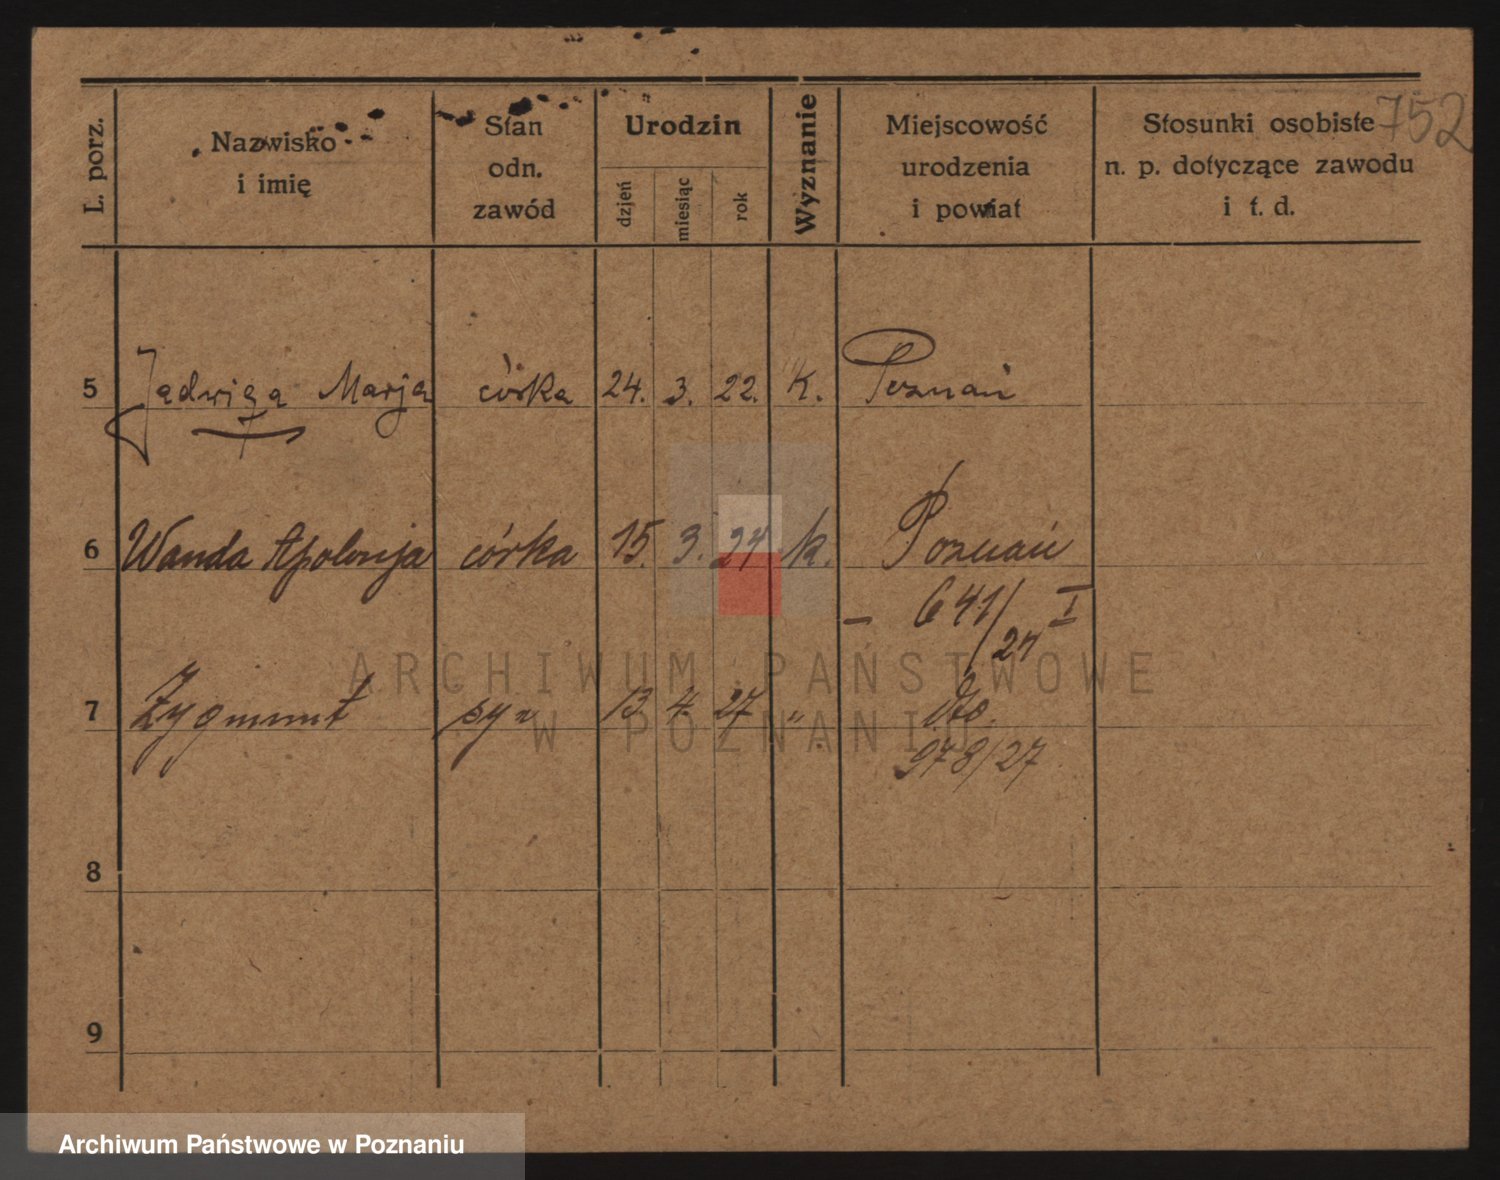 752
L. porz.
Nazwisko
i imię
Stan
odn.
zawód
Urodzin
dzień
miesiąc
rok
Wyznanie
Miejscowość
urodzenia
i powiat
Stosunki osobiste
n. p. dotyczące zawodu
i t. d.
5 Jadwiga Marja córka 24. 3. 22. k. Poznań
6 Wanda Apolonja córka 15. 3. 24 k. Poznań
– 641/24 I
7 Zygmunt syn 13. 4. 27 " dto.
978/27
8
9
ARCHIWUM PAŃSTWOWE
W POZNANIU
Archiwum Państwowe w Poznaniu